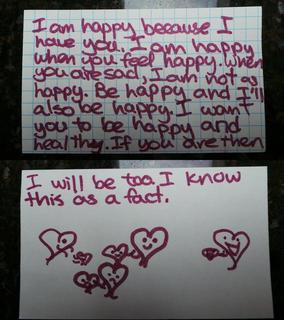 I am happy because I
have you. I am happy
when you feel happy. When
you are sad, I am not as
happy. Be happy and I'll
also be happy. I want
you to be happy and
healthy. If you are then
I will be too. I know
this as a fact.